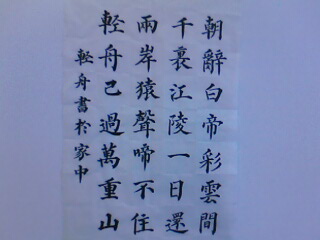 朝辭白帝彩雲間
千裏江陵一日還
兩岸猿聲啼不住
輕舟已過萬重山
輕舟書於家中